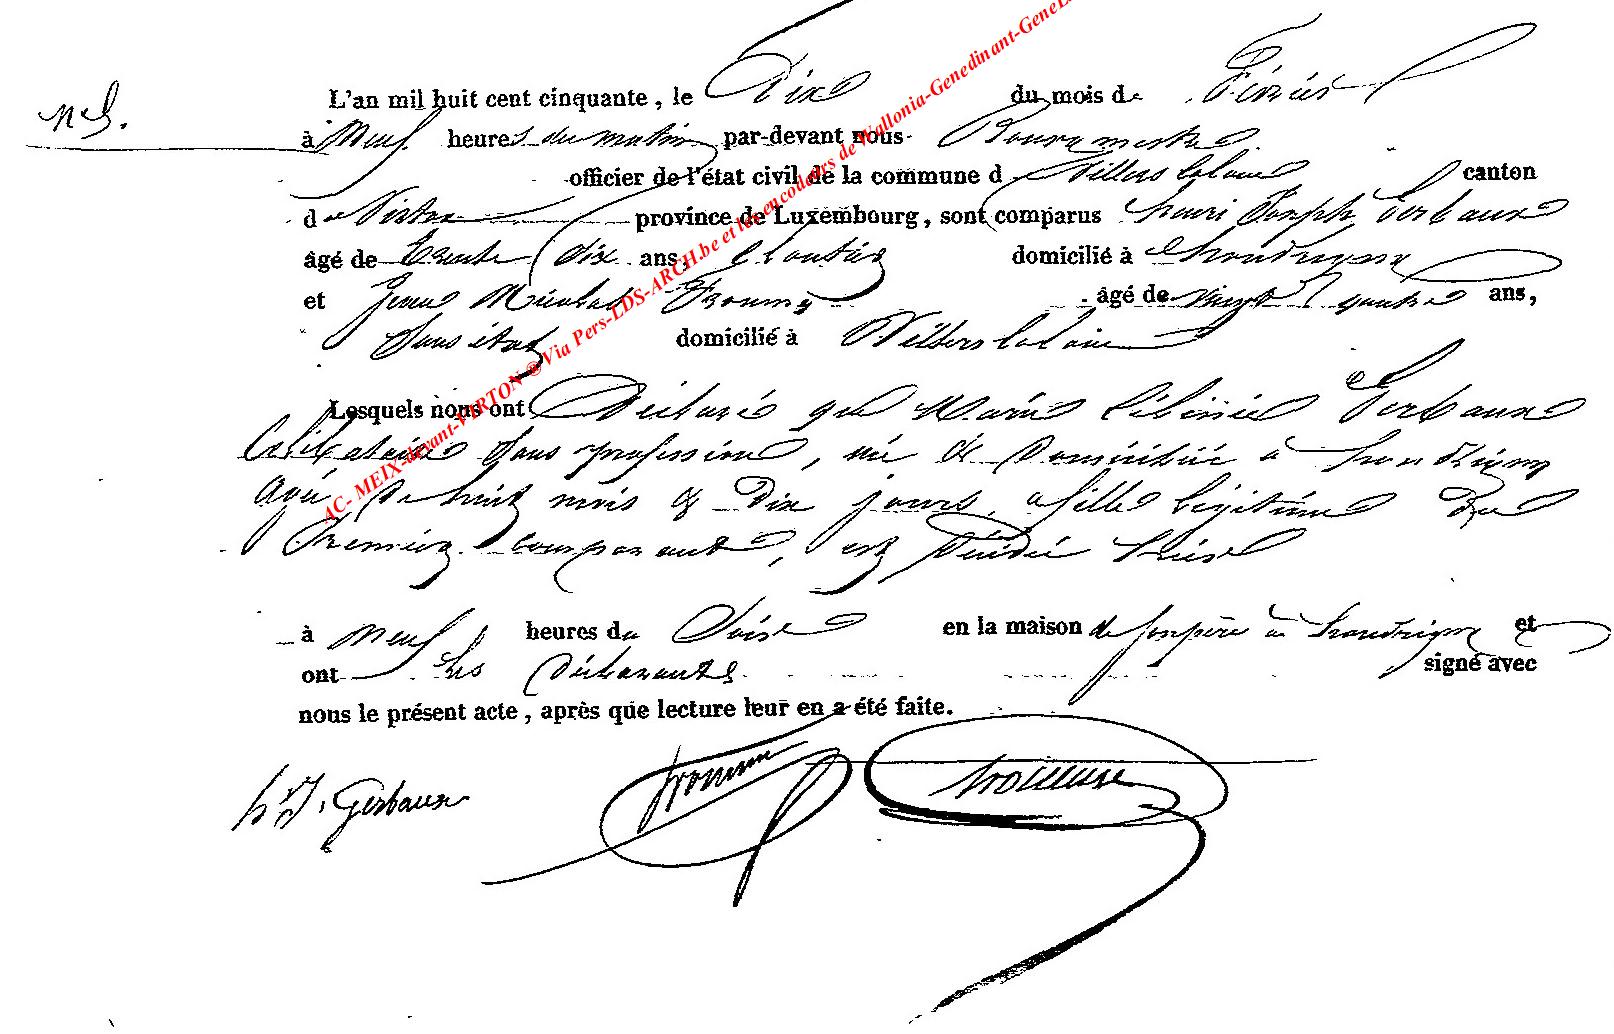 AC- MEIX-devant-VIRTON ® Via Pers-LDS-ARCH.be et les encodeurs de Wallonia-Genedinant-GeneL
L'an mil huit cent cinquante, le Dix du mois de Février
à Neuf heures du matin par-devant nous Bourgmestre
officier de l'état civil de la commune d Villers la loue canton
de Virton province de Luxembourg, sont comparus Henri Joseph Gerbaux
âgé de trente dix ans, domicilié à Houdrigny
et Jean Nicolas âgé de vingt quatre ans,
Sans état domicilié à Villers la loue
Lesquels nous ont Déclaré que Marie Gerbaux
Célibataire sans profession, née & Domiciliée à houdrigny
agée de huit mois & Dix jours, fille légitime Du
Premier comparant, est Décédée hier
à Neuf heures du Soir en la maison de son père à houdrigny et
ont les Déclarants signé avec
nous le présent acte, après que lecture leur en a été faite.
h. J. Gerbaux